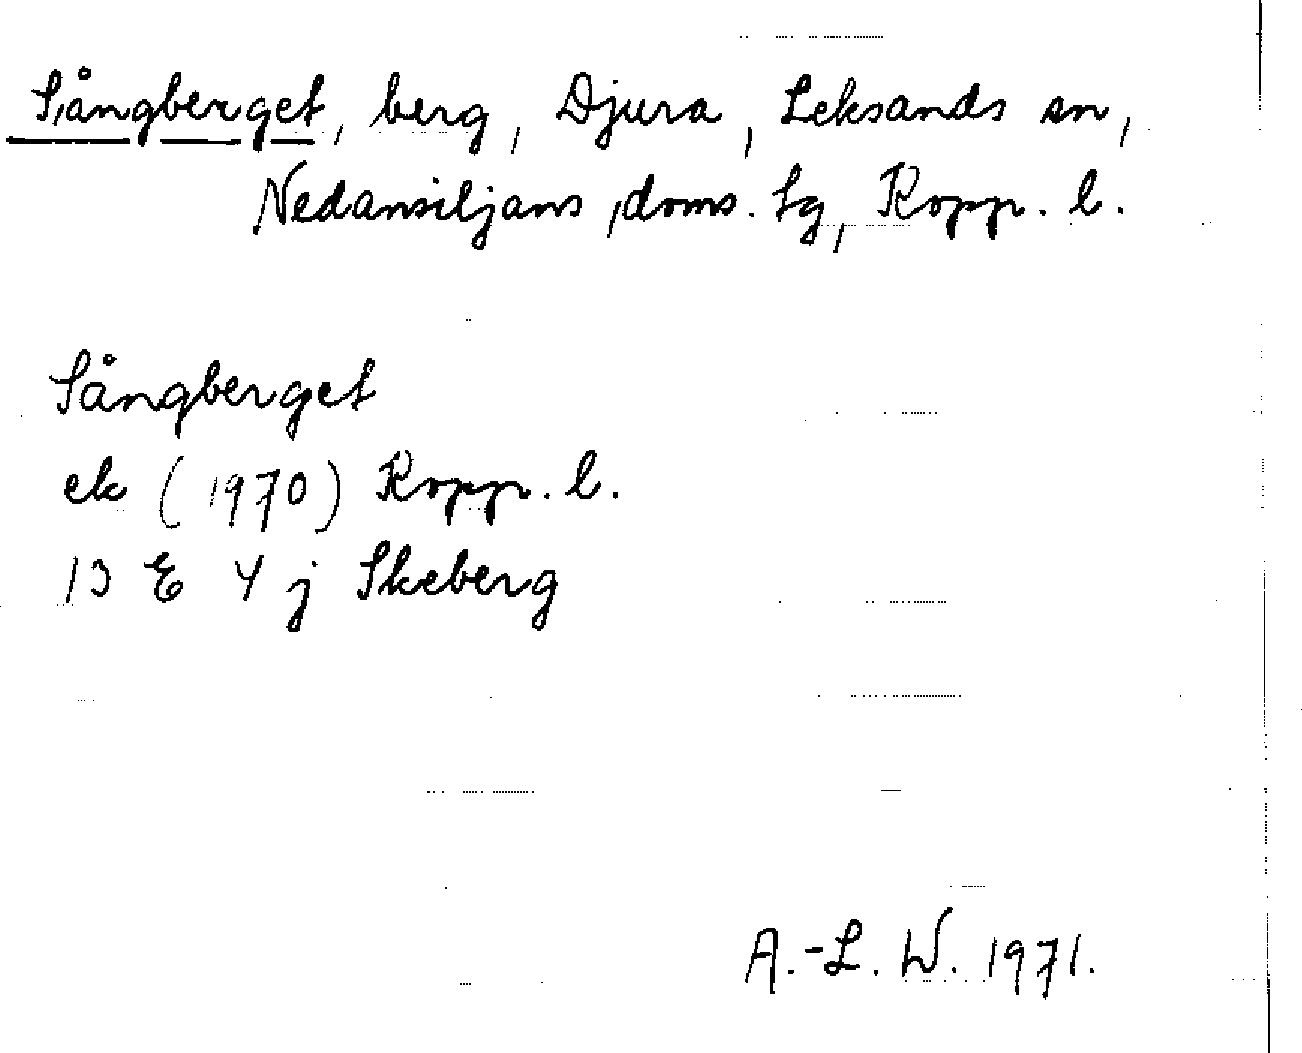 Sångberget, berg, Djura, Leksands sn,
Nedansiljans doms. lg, Kopp. l.
Sångberget
ek (1970) Kopp. l.
13 E 4 j Skeberg
A.-L. W. 1971.